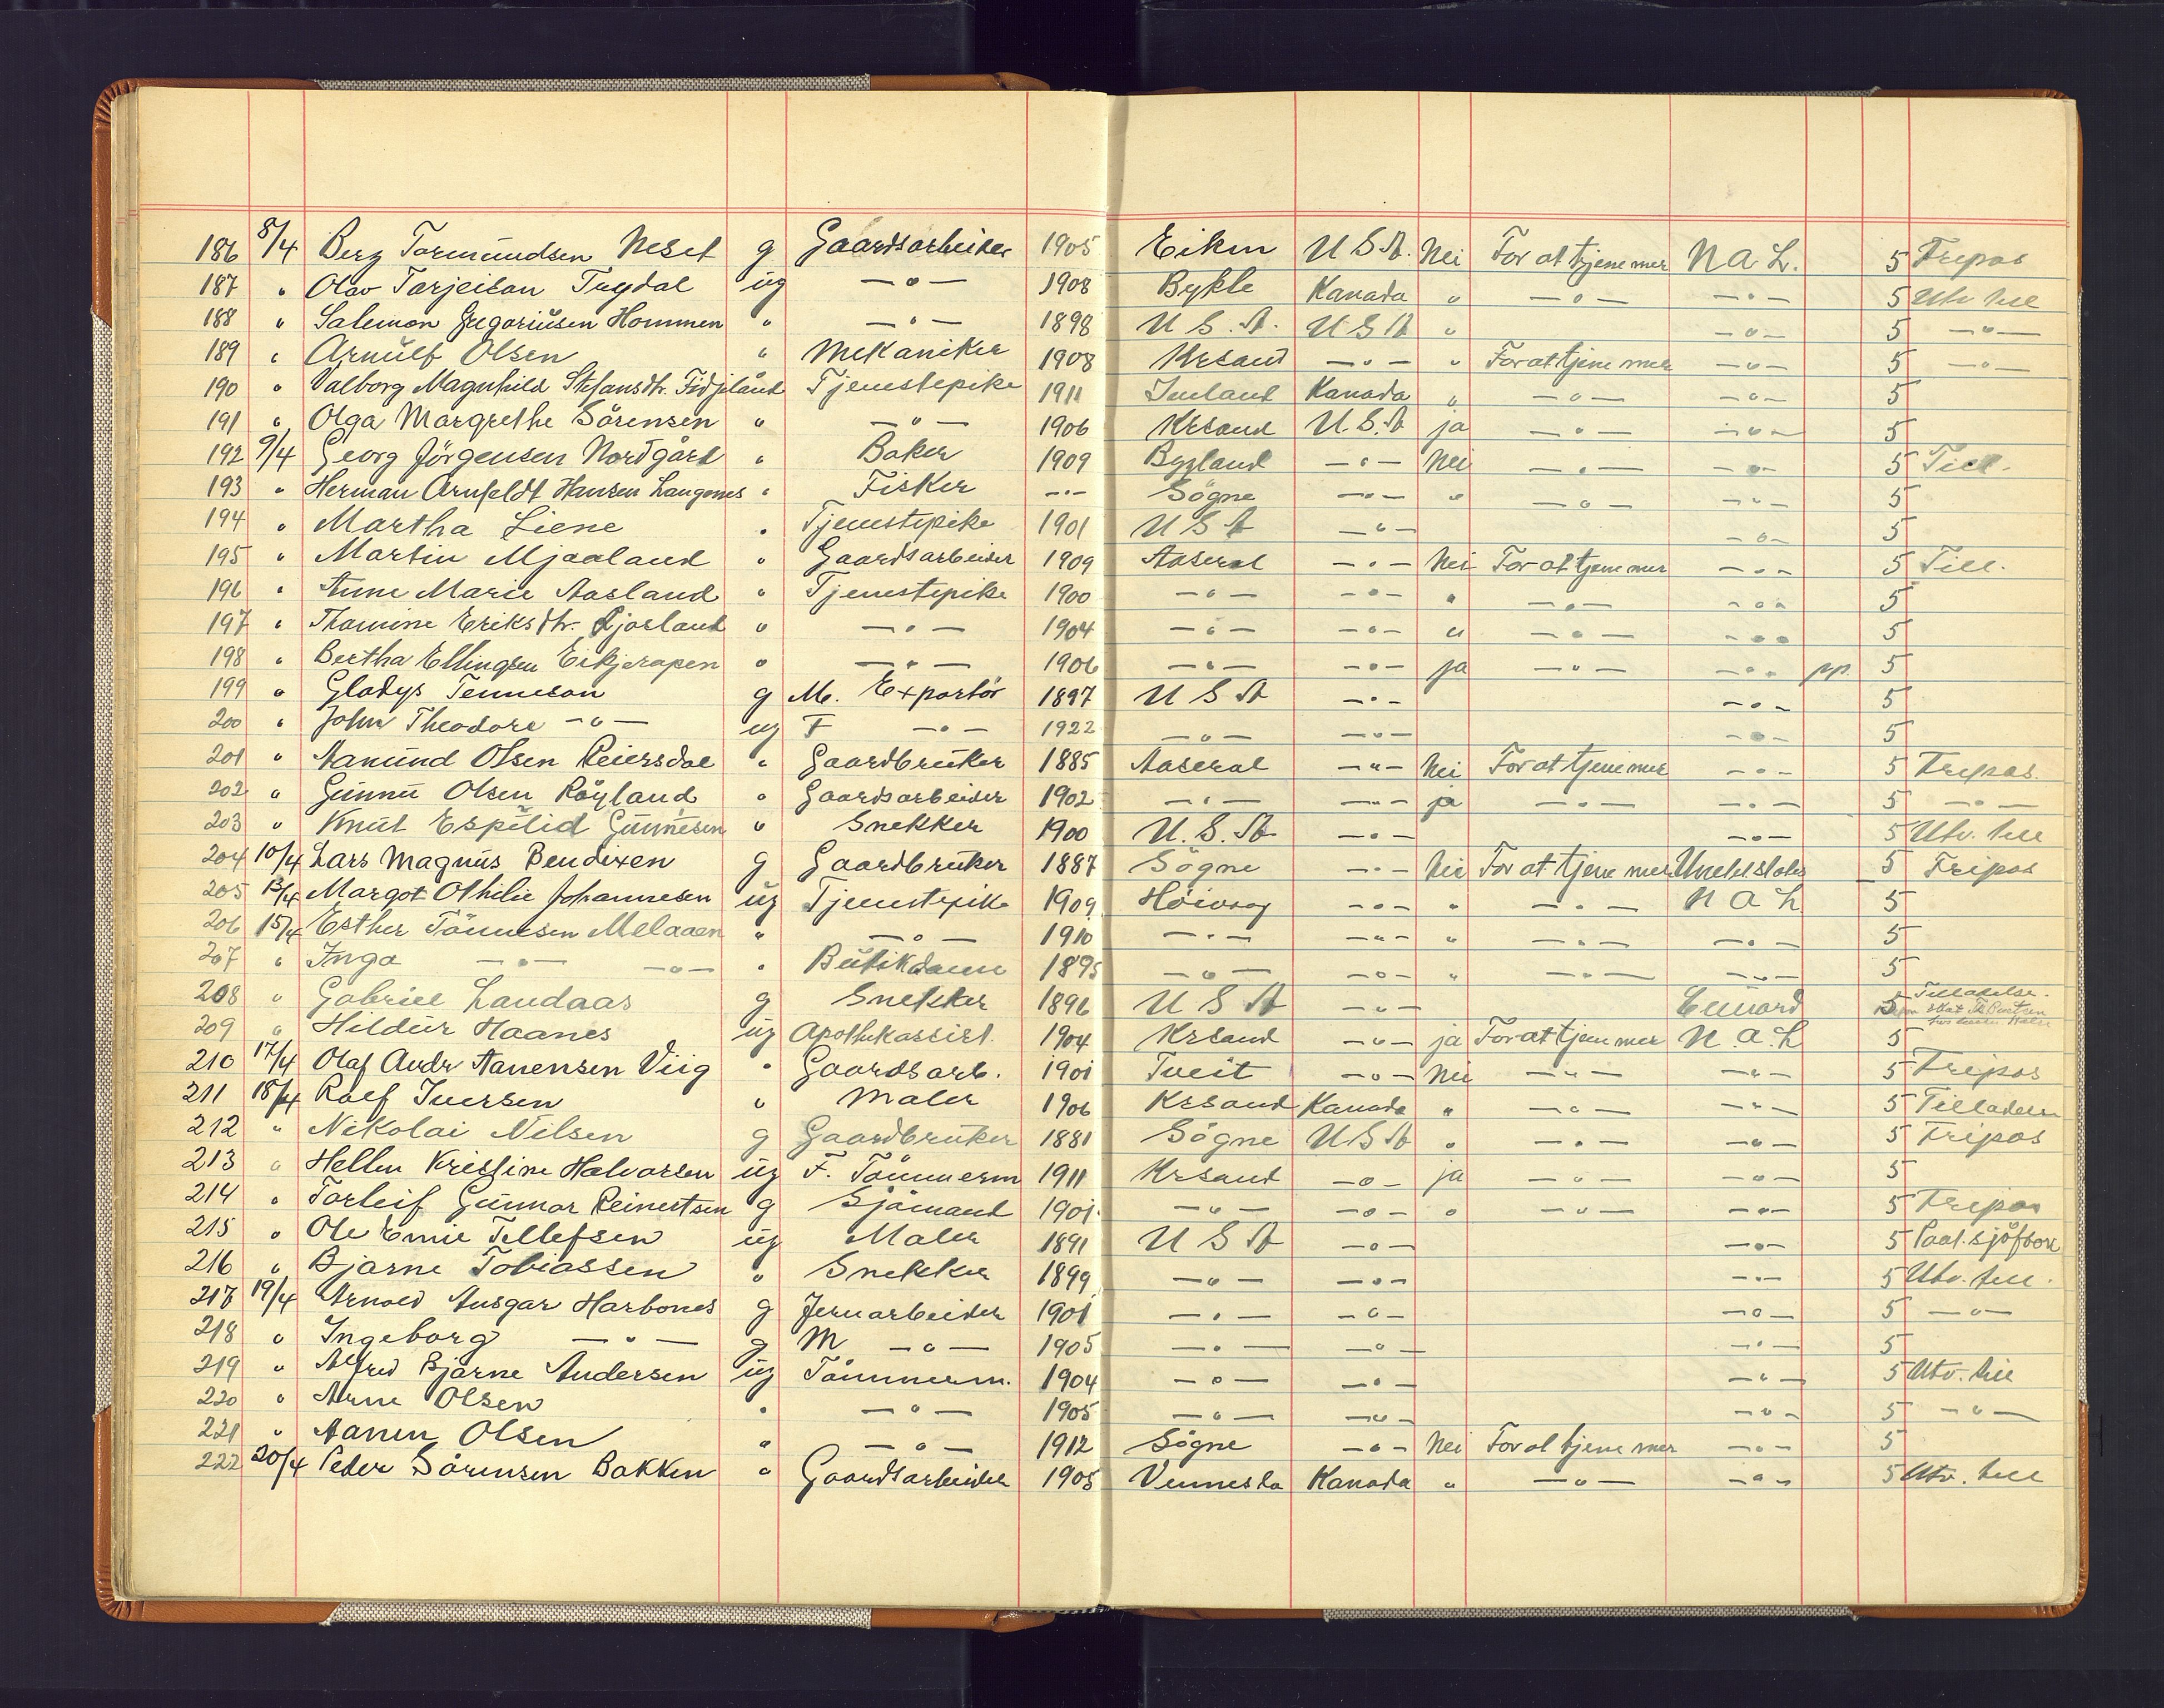 186 8/4 Berg Tormundsen Neset g Gaardsarbeider 1905 Eiken U S A. Nei For at tjene mer N A L. 5 Fripas
187 " Olav Tarjeison Trydal ug —"— 1908 Bykle Kanada " —"— —"— 5 Utv. till
188 " Salemon Gregoriusen Hommen " —"— 1898 U S. A. U S A " —"— 5 —"—
189 " Arnulf Olsen " Mekaniker 1908 Krsand —"— " For at tjene mer —"— 5 —"—
190 " Valborg Magnhild Stefansdtr. Fidjeland Tjenestepike 1911 Iveland Kanada " —"— —"— 5
191 " Olga Margrethe Sörensen " —"— 1906 Krsand U.S.A ja —"— —"— 5
192 9/4 Georg Jörgensen Nordgård " Baker 1909 Bygland —"— Nei —"— —"— 5 Till.
193 " Herman Arnfeldt Hansen Langenes " Fisker —"— Sögne —"— " —"— —"— 5
194 " Martha Liene " Tjenestepike 1901 U S A —"— —"— 5
195 " Martin Mjaaland " Gaardsarbeider 1909 Aaseral —"— Nei For at tjene mer —"— 5 Till.
196 " Anne Marie Aasland " Tjenestepike 1900 —"— —"— " —"— —"— 5
197 " Thomine Eriksdtr. Ljosland " —"— 1904 —"— —"— " —"— —"— 5
198 " Bertha Ellingsen Eikjerapen " —"— 1906 —"— —"— ja —"— —"— pp. 5
199 " Gladys Tenneson g M. Exportör 1897 U S A —"— —"— 5
200 " John Theodore —"— ug F —"— 1922 —"— —"— —"— 5
201 " Aanund Olsen Reiersdal " Gaardbruker 1885 Aaseral —"— Nei For at tjene mer —"— 5 Fripas.
202 " Gunnu Olsen Röyland " Gaardsarbeider 1902 —"— —"— ja —"— —"— 5 —"—
203 " Knut Espelid Gunnesen " Snekker 1900 U.S.A —"— —"— 5 Utv. till
204 10/4 Lars Magnus Bendixen g Gaardbruker 1887 Sögne —"— Nei For at tjene mer United states 5 Fripas
205 13/4 Margot Othilie Johannesen ug Tjenestepike 1909 Höivaag —"— " —"— N A L 5
206 15/4 Esther Tönnesen Melaaen " —"— 1910 —"— —"— " —"— —"— 5
207 " Inga —"— —"— " Butikdame 1895 —"— —"— " —"— —"— 5
208 " Gabriel Landaas g Snekker 1896 U S A —"— Cunard 5 Tilladelse.
209 " Hildur Haanes ug Apothekassist. 1904 Krsand —"— ja For at tjene mer N. A. L 5
210 17/4 Olaf Andr Aanensen Viig " Gaardsarb. 1901 Tveit —"— Nei —"— —"— 5 Fripas
211 18/4 Rolf Iversen " Maler 1906 Krsand Kanada " —"— —"— 5 Tilladelse
212 " Nikolai Nilsen g Gaardbruker 1881 Sögne U S A " —"— —"— 5 Fripas
213 " Hellen Kristine Halvorsen ug F. Tömmerm 1911 Krsand —"— ja —"— —"— 5
214 " Torleif Gunnar Reinertsen g Sjömand 1901 —"— —"— " —"— —"— 5 Fripas
215 " Ole Emil Tellefsen ug Maler 1891 U S A —"— —"— 5 Paat. sjöfbok
216 " Bjarne Tobiassen " Snekker 1899 —"— —"— —"— 5 Utv. till.
217 19/4 Arnold Ansgar Harbones g Jernarbeider 1901 —"— —"— —"— 5 —"—
218 " Ingeborg —"— g M —"— 1905 —"— —"— —"— 5
219 " Alfred Bjarne Andersen ug Tömmerm. 1904 —"— —"— —"— 5 Utv. till
220 " Arne Olsen " —"— 1905 —"— —"— —"— 5 —"—
221 " Aanen Olsen " —"— 1912 Sögne —"— Nei For at tjene mer —"— 5
222 20/4 Peder Sörensen Bakken " Gaardsarbeider 1905 Vennesla Kanada " —"— —"— 5 Utv. till